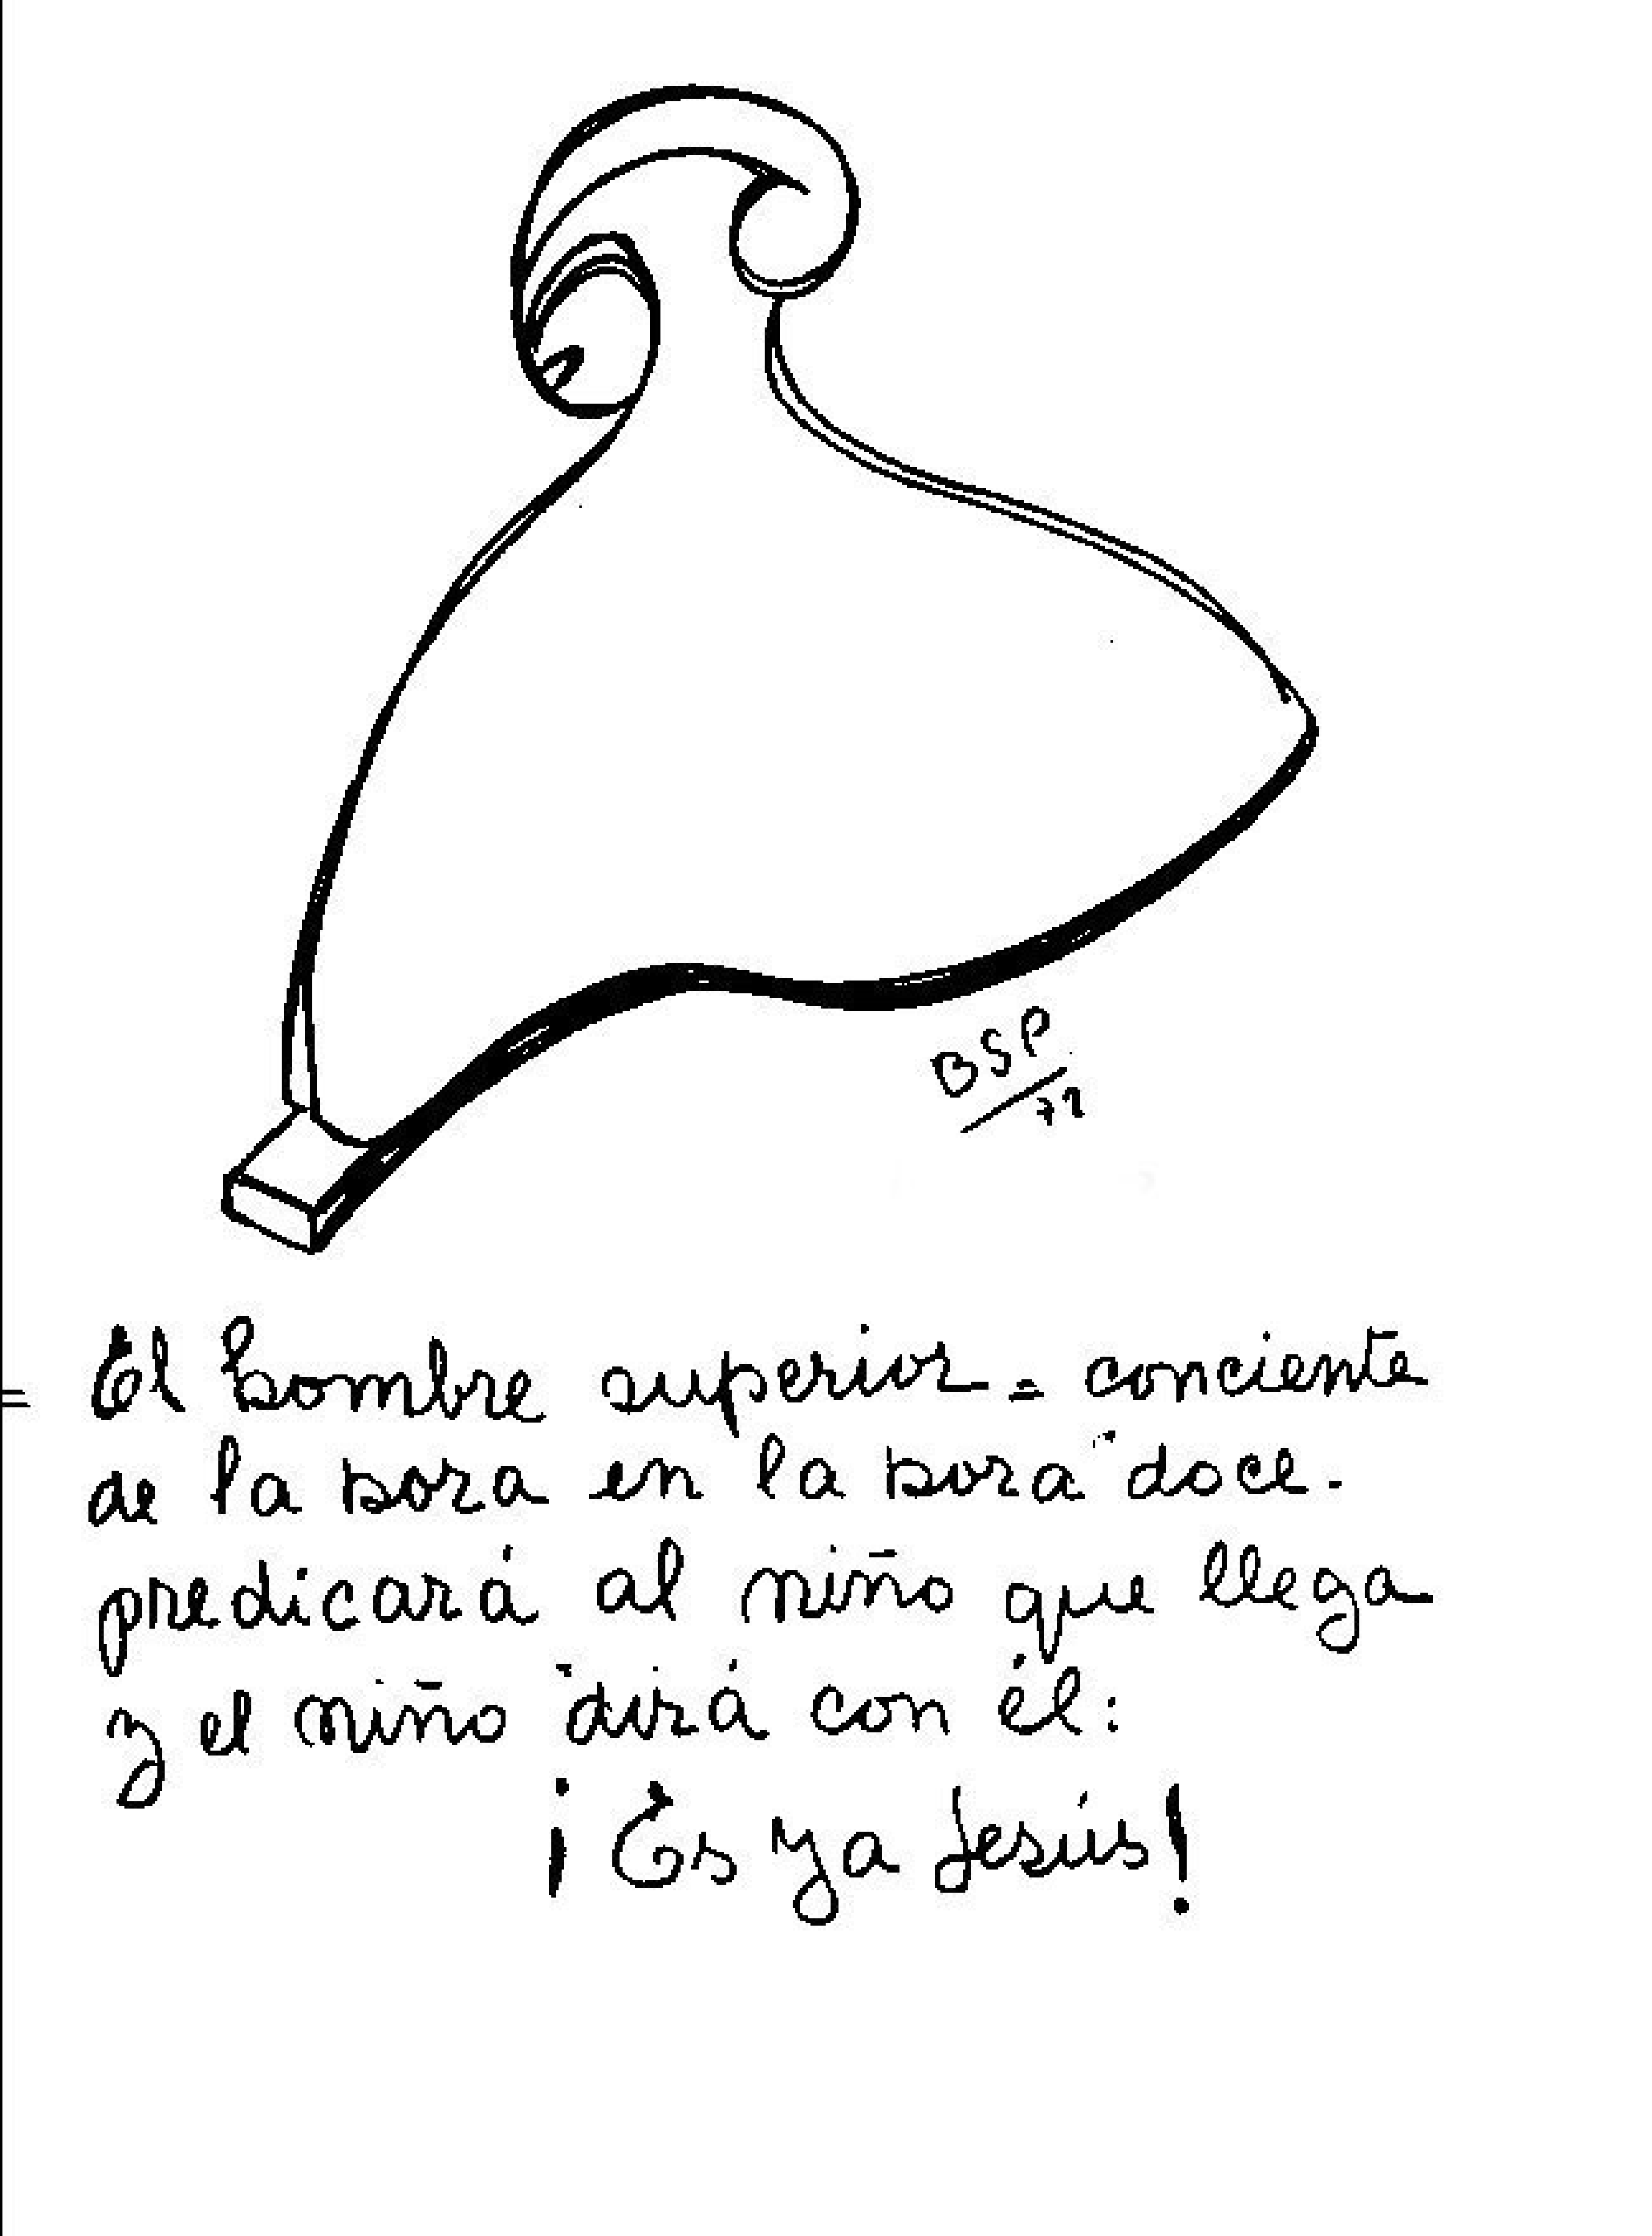 BSP
72
= El hombre superior = conciente
de la hora en la hora doce.
predicará al niño que llega
y el niño dirá con él:
¡Es ya Jesús!